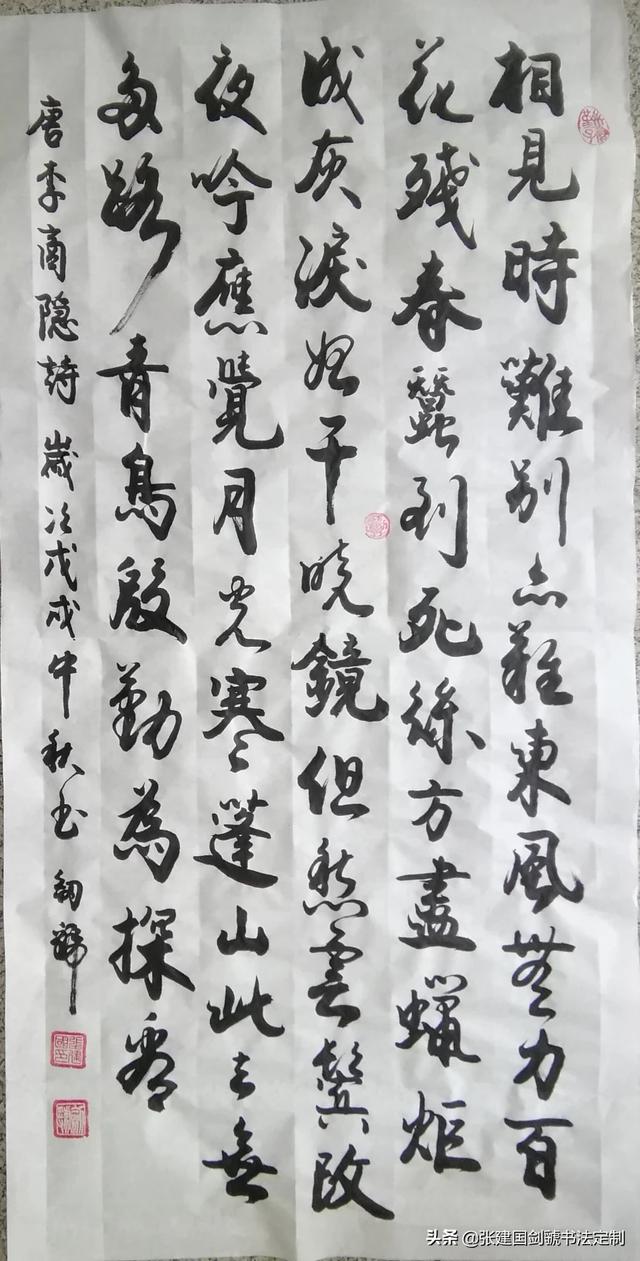 相見時難別亦難東風無力百
花殘春蠶到死絲方盡蠟炬
成灰淚始干曉鏡但愁雲鬢改
夜吟應覺月光寒蓬山此去無
多路青鳥殷勤為探看
唐李商隐詩 歲次戊戌中秋书 劍虢
头条 @张建国剑虢书法定制